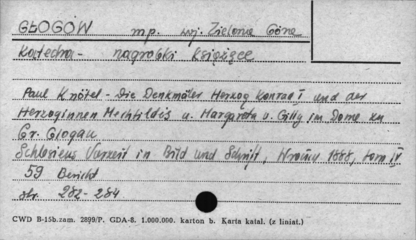 GŁOGÓW mp. woj. Zielona Góra
Katedra - nagrobki książęce
Paul Knötel - Die Denkmäler Herzog Konrad I und der
Herzoginnen Mechtildis u. Margareta v. Cilly im Dome zu
Gr. Glogau
Schlesiens Vorzeit in Bild und Schrift, 1888, tom IV
59 Bericht
str. 282-284
CWD B-15b.zam. 2899/P. GDA-8. 1.000.000. karton b. Karta katal. (z liniat.)